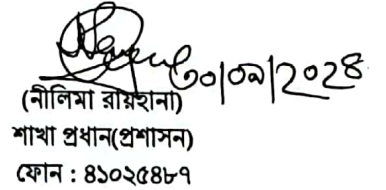 ৩০/০৯/২০২৪
(নীলিমা রায়হানা)
শাখা প্রধান(প্রশাসন)
ফোন : ৪১০২৫৪৮৭